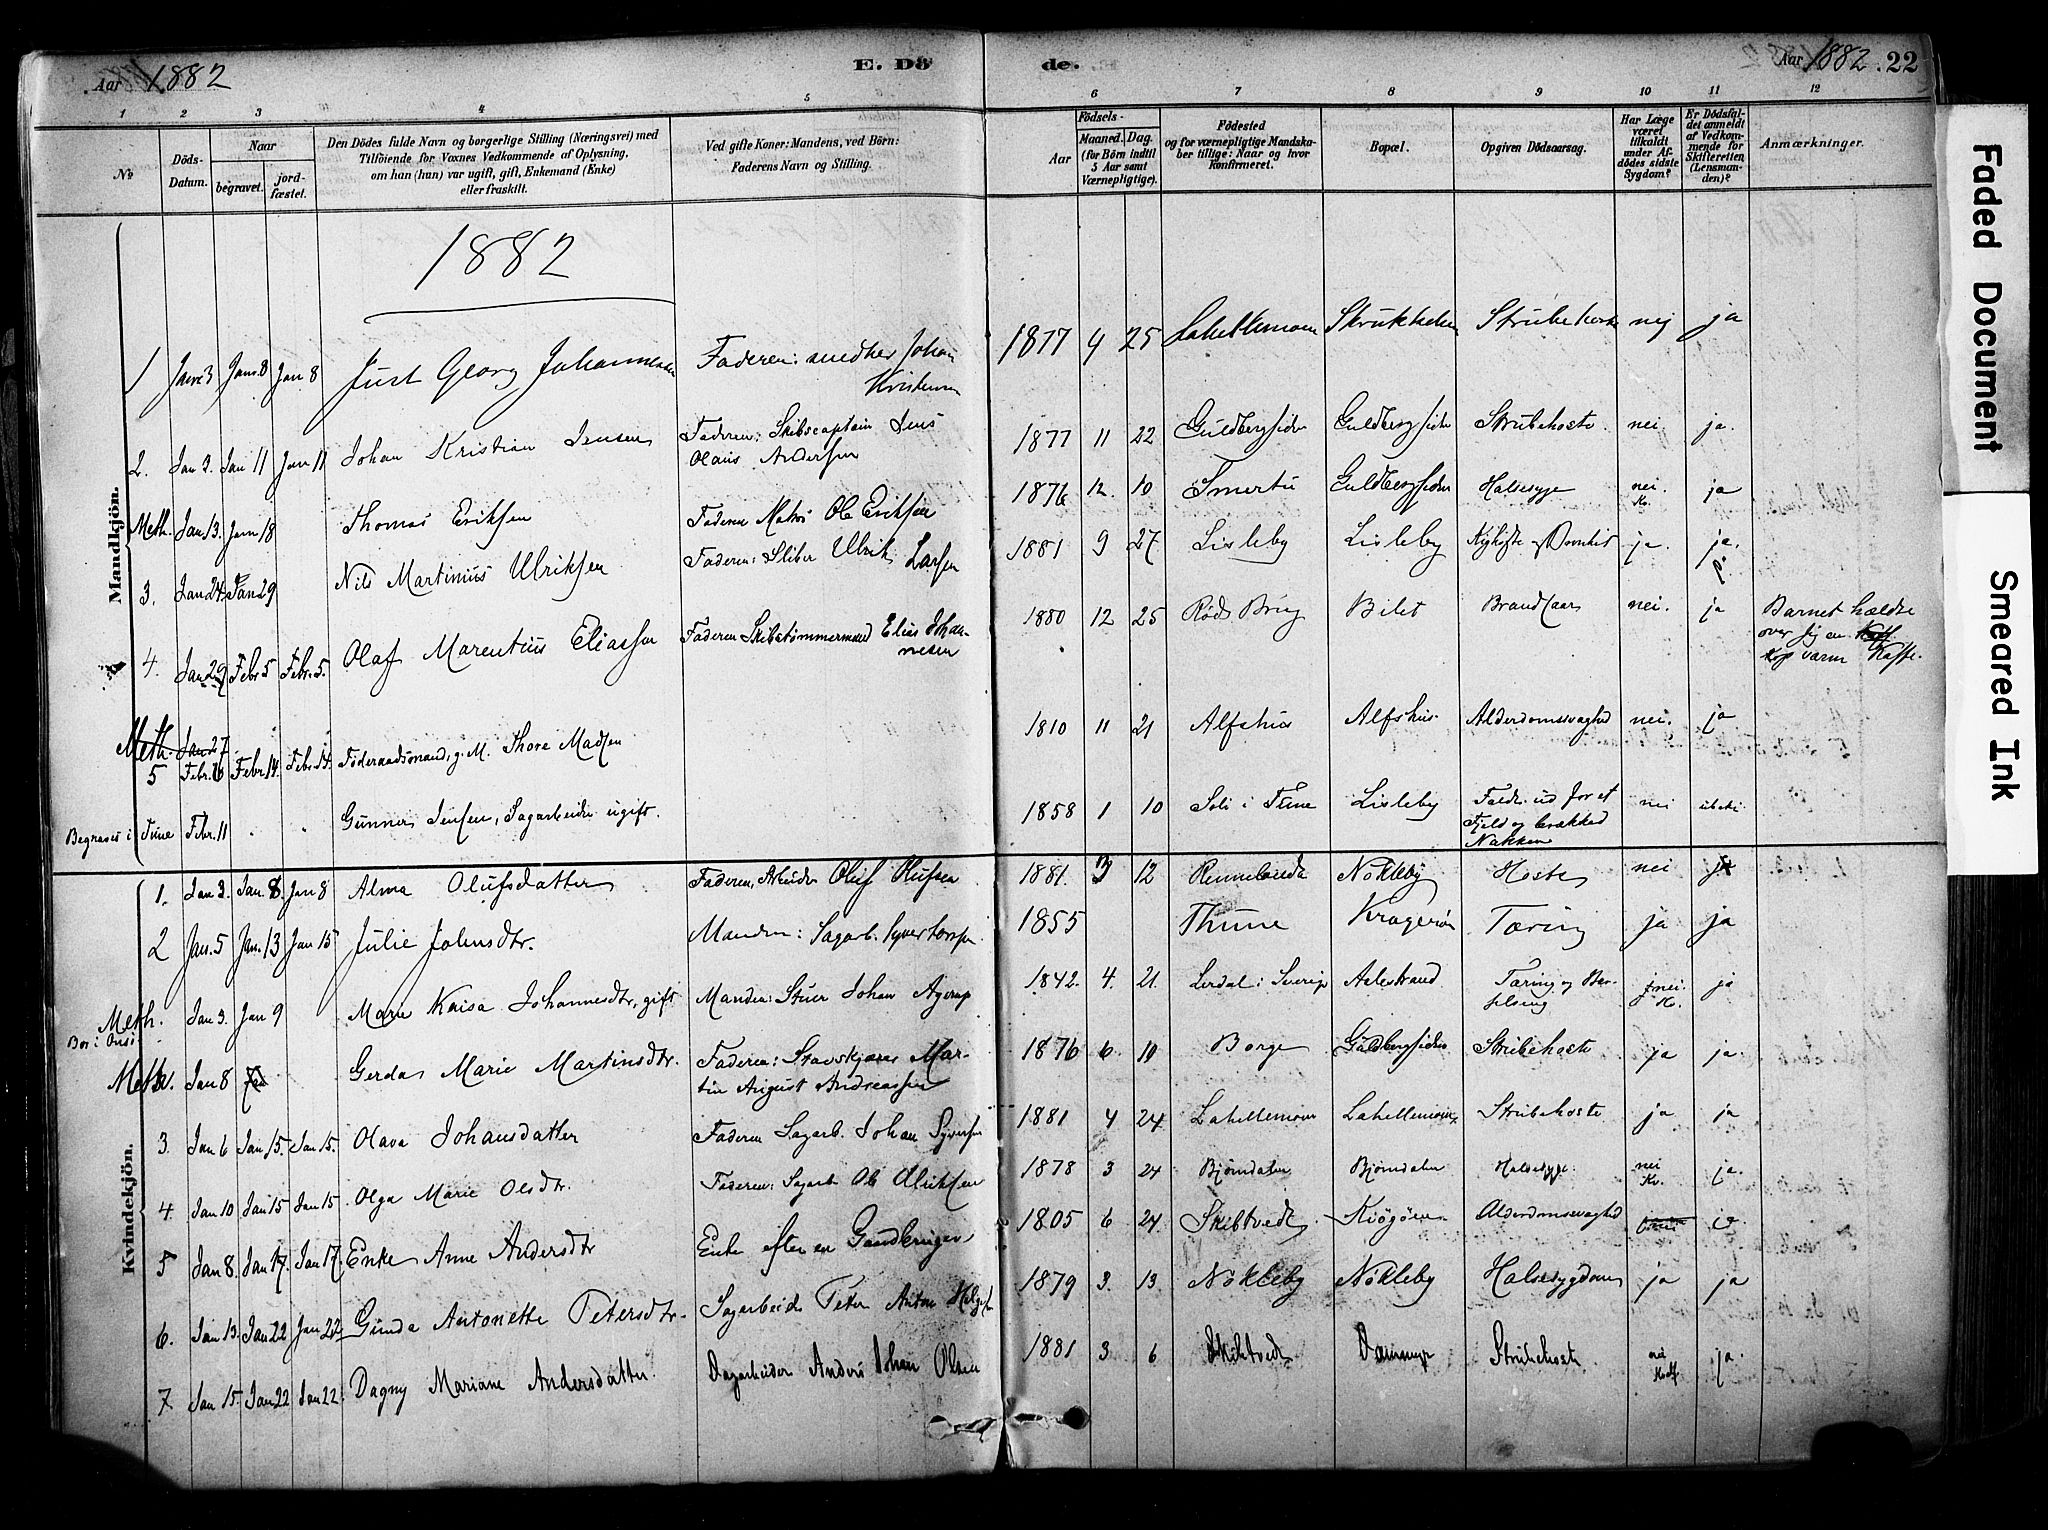 Aar 1882 E. Dö de. Aar 1882 . 22
1 2 3 4 5 6 7 8 9 10 11 12
No
Döds-Datum.
Naar
begravet.
jord-fæstet.
Den Dödes fulde Navn og borgerlige Stilling (Næringsvei) med
Tilföiende for Voxnes Vedkommende af Oplysning,
om han (hun) var ugift, gift, Enkemand (Enke)
eller fraskilt.
Ved gifte Koner: Mandens, ved Börn:
Faderens Navn og Stilling.
Födsels-
Aar
Maaned. Dag.
(for Börn indtil
5 Aar samt
Værnepligtige).
Födested
og for værnepligtige Mandska-
ber tillige: Naar og hvor
konfirmeret.
Bopæl.
Opgiven Dödsaarsag.
Har Læge
været
tilkaldt
under Af-
dödes sidste
Sygdom?
Er Dödsfal-
det anmeldt
af Vedkom-
mende for
Skifteretten
(Lensman-
den)?
Anmærkninger.
Mandkjön.
1882
1 Janr 3 Janr. 8 Jan 8 Just Georg Johannesen Faderen: Johan 1877 4 25 Lahellemoen Strubehoste nej ja
2. Jan 3. Jan 11 Jan 11 Johan Kristian Jensen Faderen: Skibscaptain Jens 1877 11 22 Guldbergsiden Guldbergsiden Strubehoste. nei ja.
Olaus Andersen
Meth. Jan. 13. Janr 18 Thomas Eriksen Faderen Matros Ole Eriksen 1876 12. 10 Smertu Guldbergsiden Halssyge nei. ja
3. Jan 24. Jan 29 Nils Martinius Ulriksen Faderen: Sliber Ulrik Larsen 1881 9 27 Lisleby Lisleby ja. ja.
4. Jan 29 Febr. 5 Febr. 5. Olaf Marentius Eliassen Faderen Skibstömmermand Elias Johan- 1880 12 25 Röds Brug Bilet Brandsaar nei. ja Barnet hældte
nesen
over sig en
Kop varm Kaffe.
Meth. Jan 27
5 Febr. 6 Febr. 14. Febr. 14. Föderaadsmand, g. M. Thore Madsen 1810 11 21 Alfshus Alfshus. Alderdomssvaghed nei. ja
Begraves i Tune Febr. 11 Gunner Jensen, Sagarbeider ugift. 1858 1 10 Soli i Tune Lisleby Faldt ud for et nei
Fjeld og brækked
Nakken
Kvindekjön.
1. Jan 3. Jan. 8. Jan 8 Alma Olufsdatter Faderen, Arbeider Oluf Olufsen 1881. 3 12 Nökleby Hoste nei ja
2 Jan. 5 Jan. 13 Jan 15 Julie Johnsdtr. Manden: Sagarb. Syvertsen 1855 Thune Kragerøen Tæring ja ja
Meth. Jan 3. Jan 9 Marie Kaisa Johannesdtr, gift Manden: Stuer Johan Agerup 1842. 4. 21. Lerdal i Sverig Aalestrand Tæring og Bar- nei ja
selseng
Bor i Onsö
Meth. Jan 8 Gerda Marie Martinsdtr. Faderen: Stavskjærer Mar- 1876 6. 10 Borge Guldbergsiden Strubehoste ja ja.
tin August Andreassen
3. Jan 6 Jan. 15. Jan 15. Olava Johansdatter Faderen Sagarb. Johan Syversen 1881 4 24 Lahellemoen Lahellemoen Strubehoste ja ja
4. Jan 10 Jan 15 Jan 15. Olga Marie Olsdtr. Faderen: Sagarb. Ole Ulriksen 1878 3 24 Bjørndalen Bjørndalen Halssyge. nei ja.
5 Jan 8. Jan 17. Jan 17. Enke Anne Andersdtr Enke efter en Gaardbruger 1805 6 24. Skibtvedt Alderdomssvaghed
6. Jan 13. Jan 22 Jan 22 Gunda Antonette Petersdtr. Sagarbeider Peter Anton 1879 3. 13. Nökleby Nökleby Halssygdom ja ja
7 Jan 15. Jan 22 Jan 22. Dagny Mariane Andersdatter. Sagarbeider Anders Johan Olsen 1881 3 6 Skibtvedt Strubehoste nei ja.
Faded Document
Smeared Ink